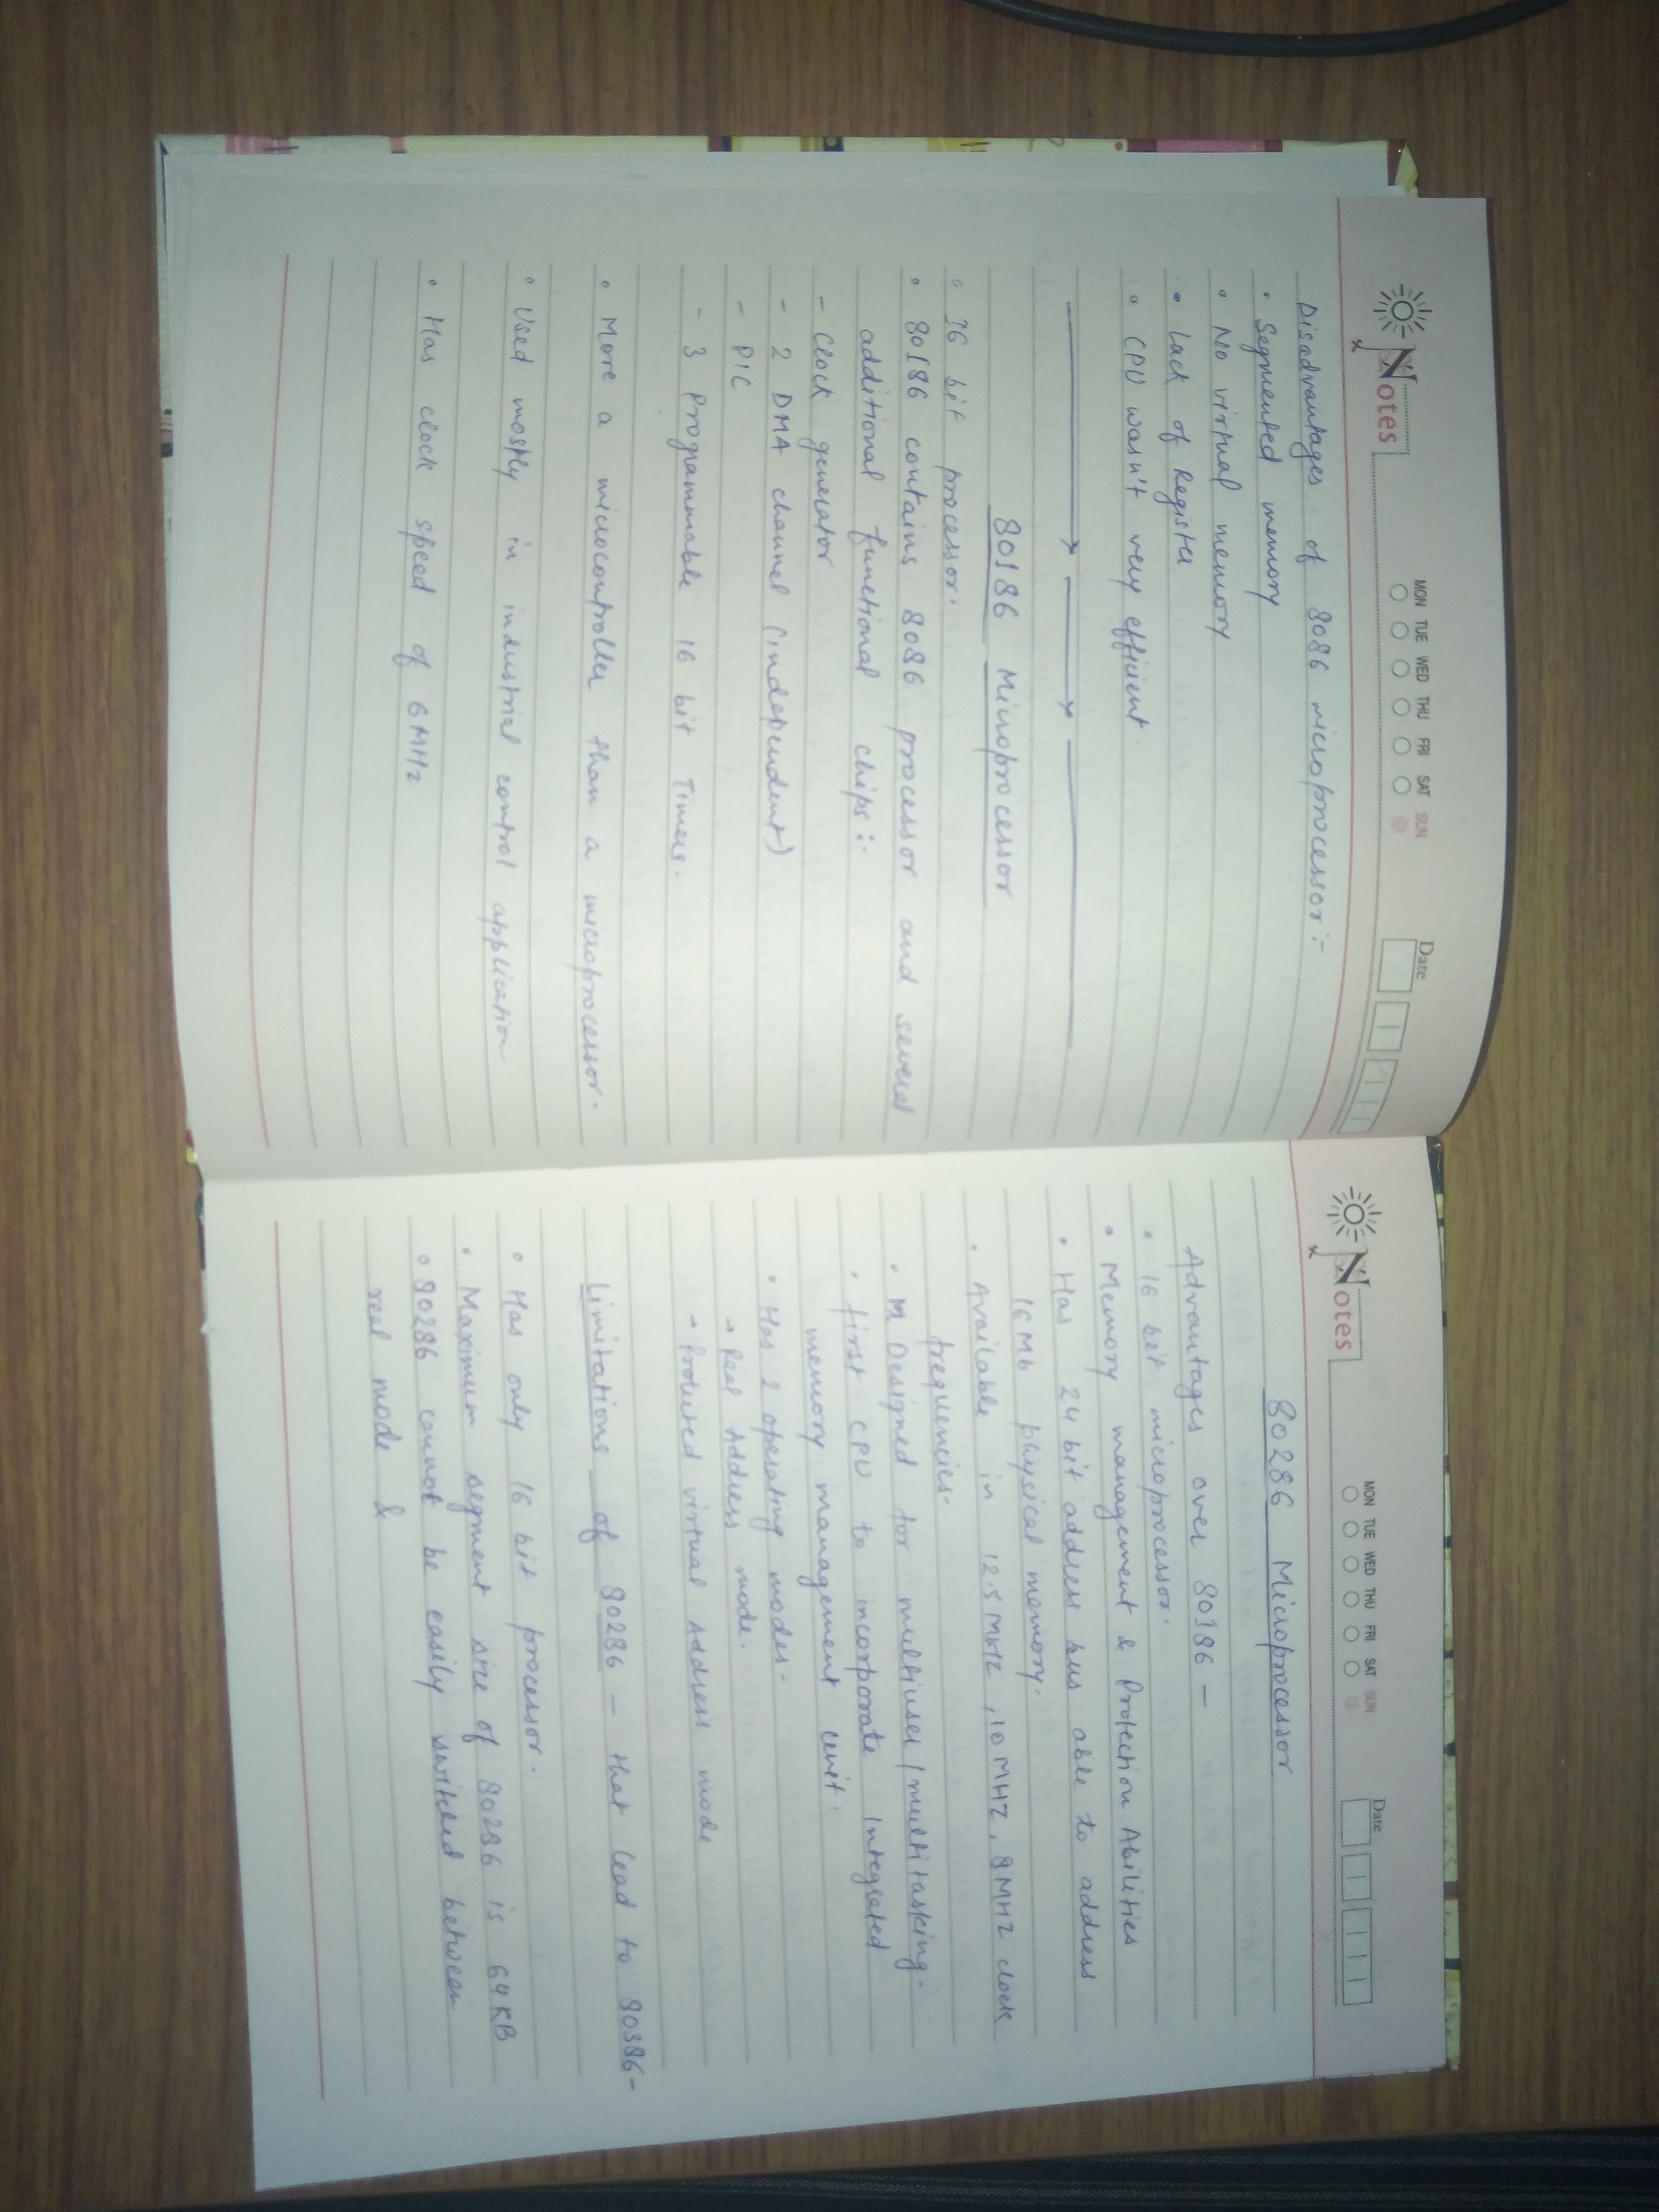 Notes
MON TUE WED THU FRI SAT SUN
Date
Disadvantages of 8086 microprocessor:-
• Segmented memory
• No virtual memory
• Lack of Register
• CPU wasn't very efficient.
80186 Microprocessor
• 16 bit processor.
• 80186 contains 8086 processor and several
additional functional chips:-
- Clock generator
- 2 DMA channel (independent)
- PIC
- 3 Programmable 16 bit Timers.
• More a microcontroller than a microprocessor.
• Used mostly in industrial control application
• Has clock speed of 6 MHz
Notes
MON TUE WED THU FRI SAT SUN
Date
80286 Microprocessor
Advantages over 80186 -
• 16 bit microprocessor.
• Memory management & Protection Abilities
• Has 24 bit address bus able to address
16 Mb physical memory.
• Available in 12.5 MHZ, 10 MHZ, 8 MHZ clock
frequencies.
• Designed for multiuser/multitasking.
• first CPU to incorporate Integrated
memory management unit.
• Has 2 operating modes-
→ Real Address mode.
→ Protected virtual Address mode
Limitations of 80286 - that lead to 80386-
• Has only 16 bit processor.
• Maximum segment size of 80286 is 64KB
• 80286 cannot be easily switched between
real mode &